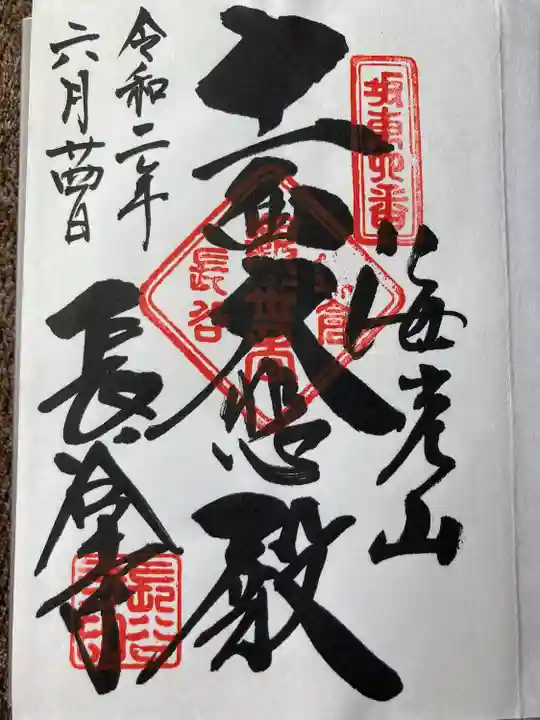 坂東四番
海光山
十一面大悲殿
長谷
令和二年
六月廿四日
長谷寺